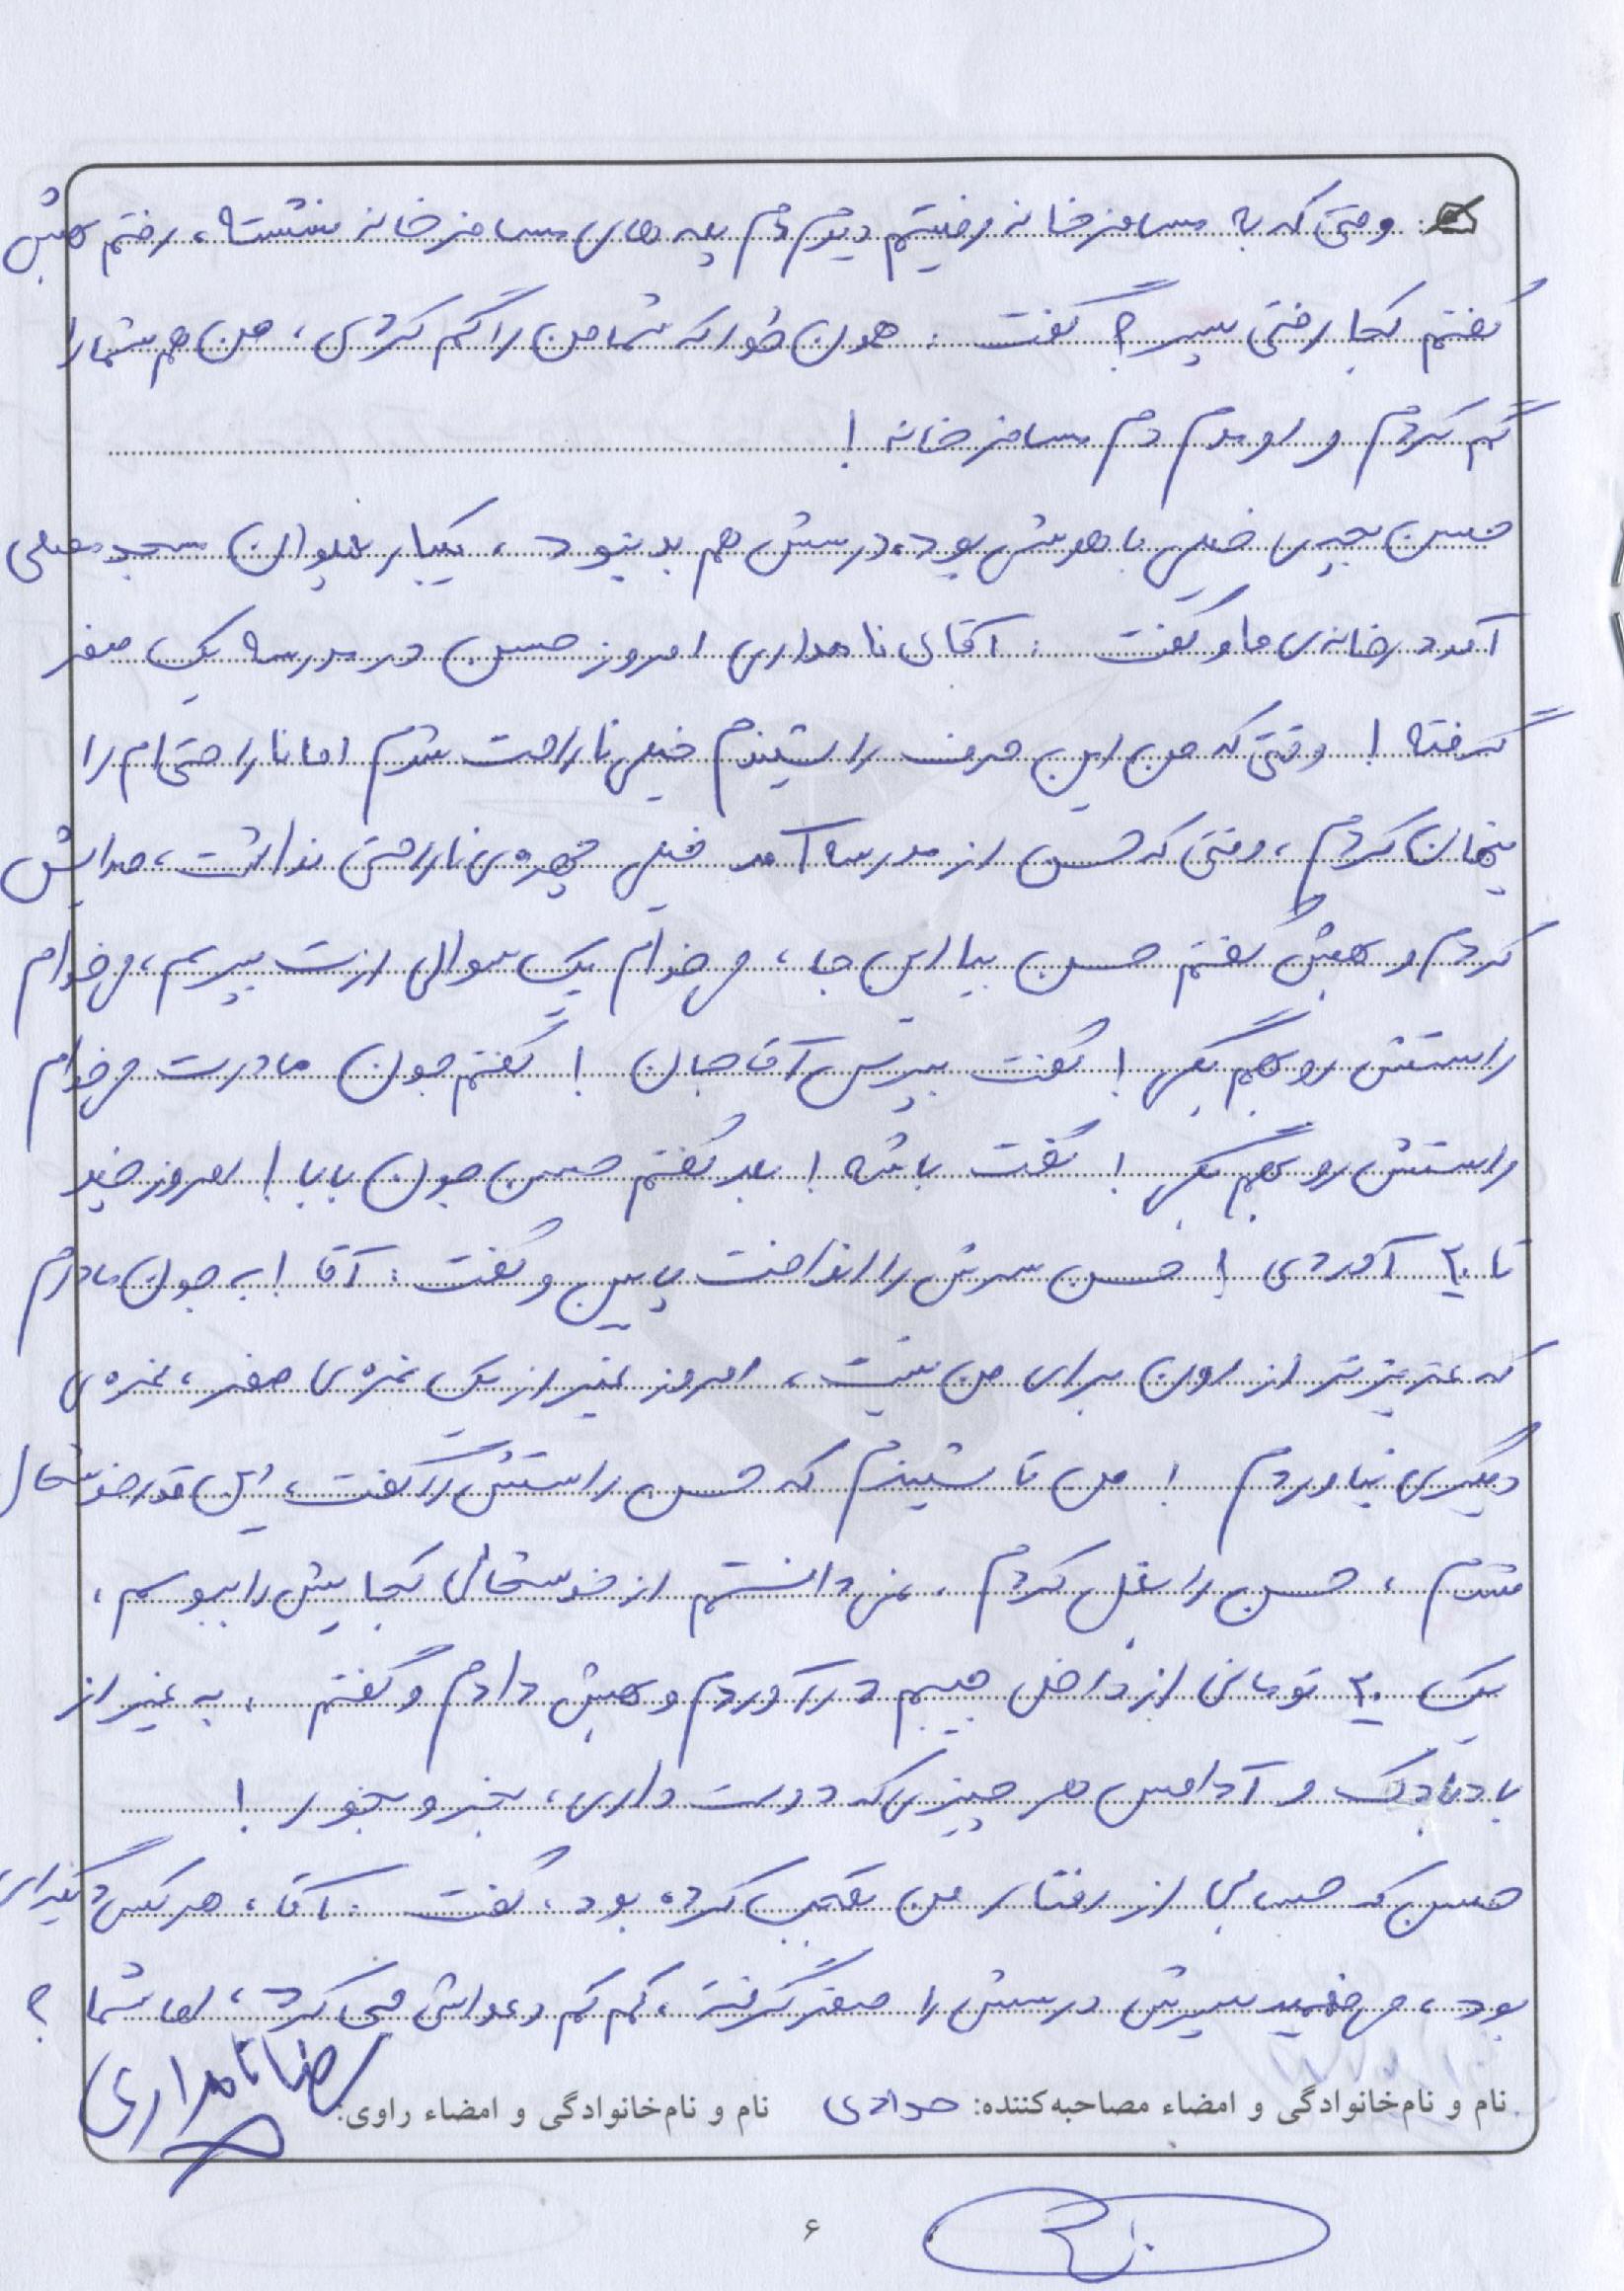 وقتی که به مسافرخانه رفتیم دیدم دم پله های مسافرخانه نشسته، رفتم بهش
گفتم کجا رفتی پسر؟ گفت : همون طور که شما من را گم کردی، من هم شما را
گم کردم و اومدم دم مسافرخانه !
حسن بچه ی خیلی باهوشی بود، درسش هم بد نبود، یکبار عنوان سجد معلمی
آمد در خانه ی ما و گفت : آقای نامداری امروز حسن در مدرسه یک صفر
گرفته ! وقتی که من این حرف را شنیدم خیلی ناراحت شدم اما ناراحتی ام را
پنهان کردم، وقتی که حسن از مدرسه آمد خیلی چهره ی ناراحتی نداشت، صدایش
کردم و بهش گفتم حسن بیا این جا، می خوام یک سوالی ازت بپرسم، می خوام
راستش رو بهم بگی ! گفت بپرس آقا جان ! گفتم جون مادرت می خوام
راستش رو بهم بگی ! گفت باشه ! بعد گفتم حسن جون بابا ! امروز چند
تا ۲۰ آوردی ! حسن سرش را انداخت پایین و گفت : آقا ! به جون مادرم
که عزیزتر از اون برای من نیست، امروز غیر از یک نمره ی صفر، نمره ی
دیگری نیاوردم ! من تا شنیدم که حسن راستش را گفت، این قدر خوشحال
شدم، حسن را بغل کردم، نمی دانستم از خوشحالی کجایش را ببوسم،
یک ۲۰ تومانی از داخل جیبم در آوردم و بهش دادم و گفتم، به غیر از
بادبادک و آدامس هر چیزی که دوست داری، بخر و بخور !
حسن که حسابی از رفتار من تعجب کرده بود، گفت : آقا، هر کس دیگه ای
بود، می فهمید پسرش درسش را صفر گرفته، کم کم دعواش می کرد، اما شما ؟
نام و نام‌خانوادگی و امضاء مصاحبه‌کننده: جوادی نام و نام‌خانوادگی و امضاء راوی: رضا نامداری
۶